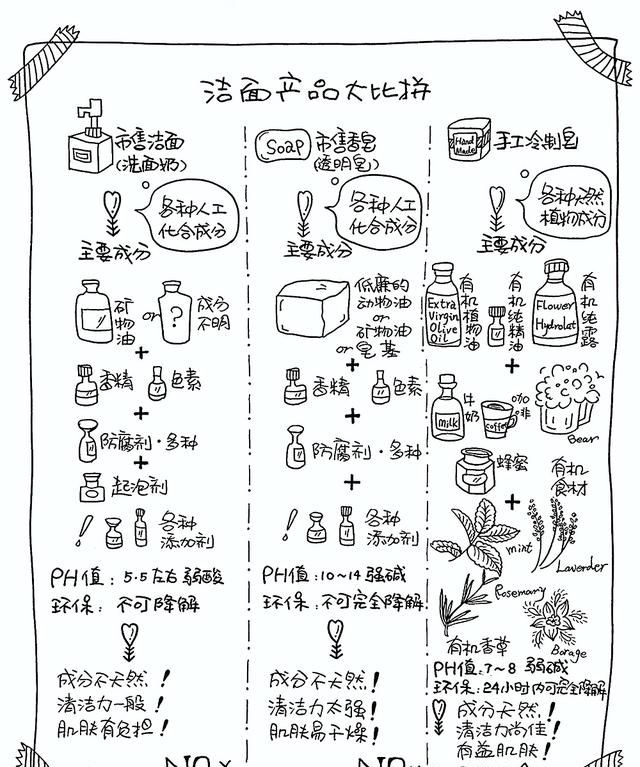 洁面产品大比拼
市售洁面
(洗面奶)
各种人工
化合成分
主要成分
矿物油
or
?
成分
不明
+
香精
色素
+
防腐剂·多种
+
起泡剂
各种
添加剂
PH值：5.5左右 弱酸
环保：不可降解
成分不天然！
清洁力一般！
肌肤有负担！
Soap
市售香皂
(透明皂)
各种人工
化合成分
主要成分
低廉的
动物油
or
矿物油
or 皂基
+
香精
色素
+
防腐剂·多种
+
各种
添加剂
PH值：10～14 强碱
环保：不可完全降解
成分不天然！
清洁力太强！
肌肤易干燥！
Hand
Made
手工冷制皂
各种天然
植物成分
主要成分
Extra
Virgin
Olive
Oil
有机植物油
有机纯精油
Flower
Hydrolat
有机纯露
+
milk
牛奶
coffee
咖啡
Bear
蜂蜜
有机
食材
+
mint
Laverder
Rosemary
Borage
有机香草
PH值：7～8 弱碱
环保：24小时内可完全降解
成分天然！
清洁力尚佳！
有益肌肤！